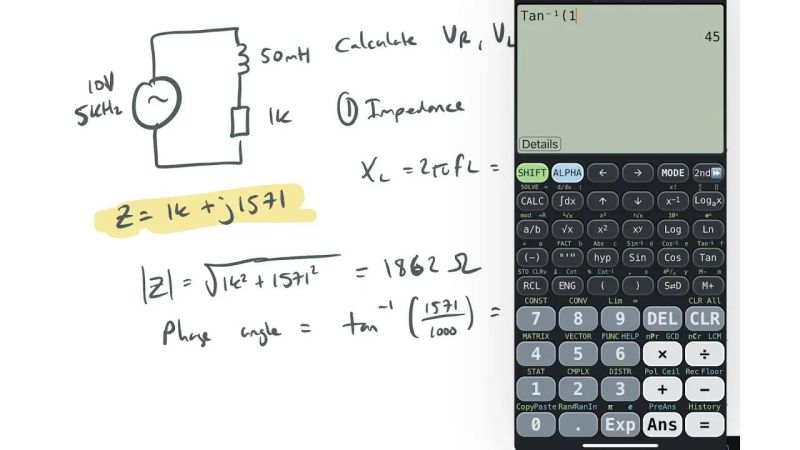 Calculate VR, VL
50mH
10V
5kHz
1k
① Impedance
XL = 2πfL =
Z = 1k + j1571
|Z| = √1k² + 1571² = 1862 Ω
Phase angle = tan⁻¹ (1571/1000) =
Tan⁻¹(1
45
Details
SHIFT ALPHA ← → MODE 2nd
SOLVE = d/dx : x! ∑ ∏
CALC ∫dx ↑ ↓ x⁻¹ Logₐx
mod ÷R ³√x x³ ʸ√x 10ˣ eˣ
a/b √x x² xʸ Log Ln
∠ a FACT b Abs c Sin⁻¹ d Cos⁻¹ e Tan⁻¹ f
(−) °'" hyp Sin Cos Tan
STO CLRv i Cot % Cot⁻¹ , x y M− m
RCL ENG ( ) S⇄D M+
CONST CONV Lim ∞ CLR All
7 8 9 DEL CLR
MATRIX VECTOR FUNC HELP nPr GCD nCr LCM
4 5 6 × ÷
STAT CMPLX DISTR Pol Ceil Rec Floor
1 2 3 + −
CopyPaste Ran#RanIn π e PreAns History
0 . Exp Ans =